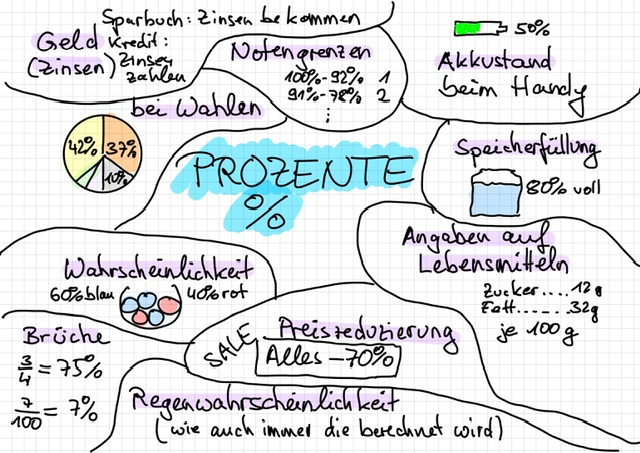 Sparbuch: Zinsen bekommen
Geld
(Zinsen)
Kredit:
Zinsen
zahlen
Notengrenzen
100%-92% 1
91%-78% 2
⋮
50%
Akkustand
beim Handy
bei Wahlen
42% 37%
10%
PROZENTE
%
Speicherfüllung
80% voll
Angaben auf
Lebensmitteln
Zucker....12g
Fett....32g
je 100g
Wahrscheinlichkeit
60% blau 40% rot
Brüche
3/4 = 75%
7/100 = 7%
Preisreduzierung
SALE
Alles -70%
Regenwahrscheinlichkeit
(wie auch immer die berechnet wird)